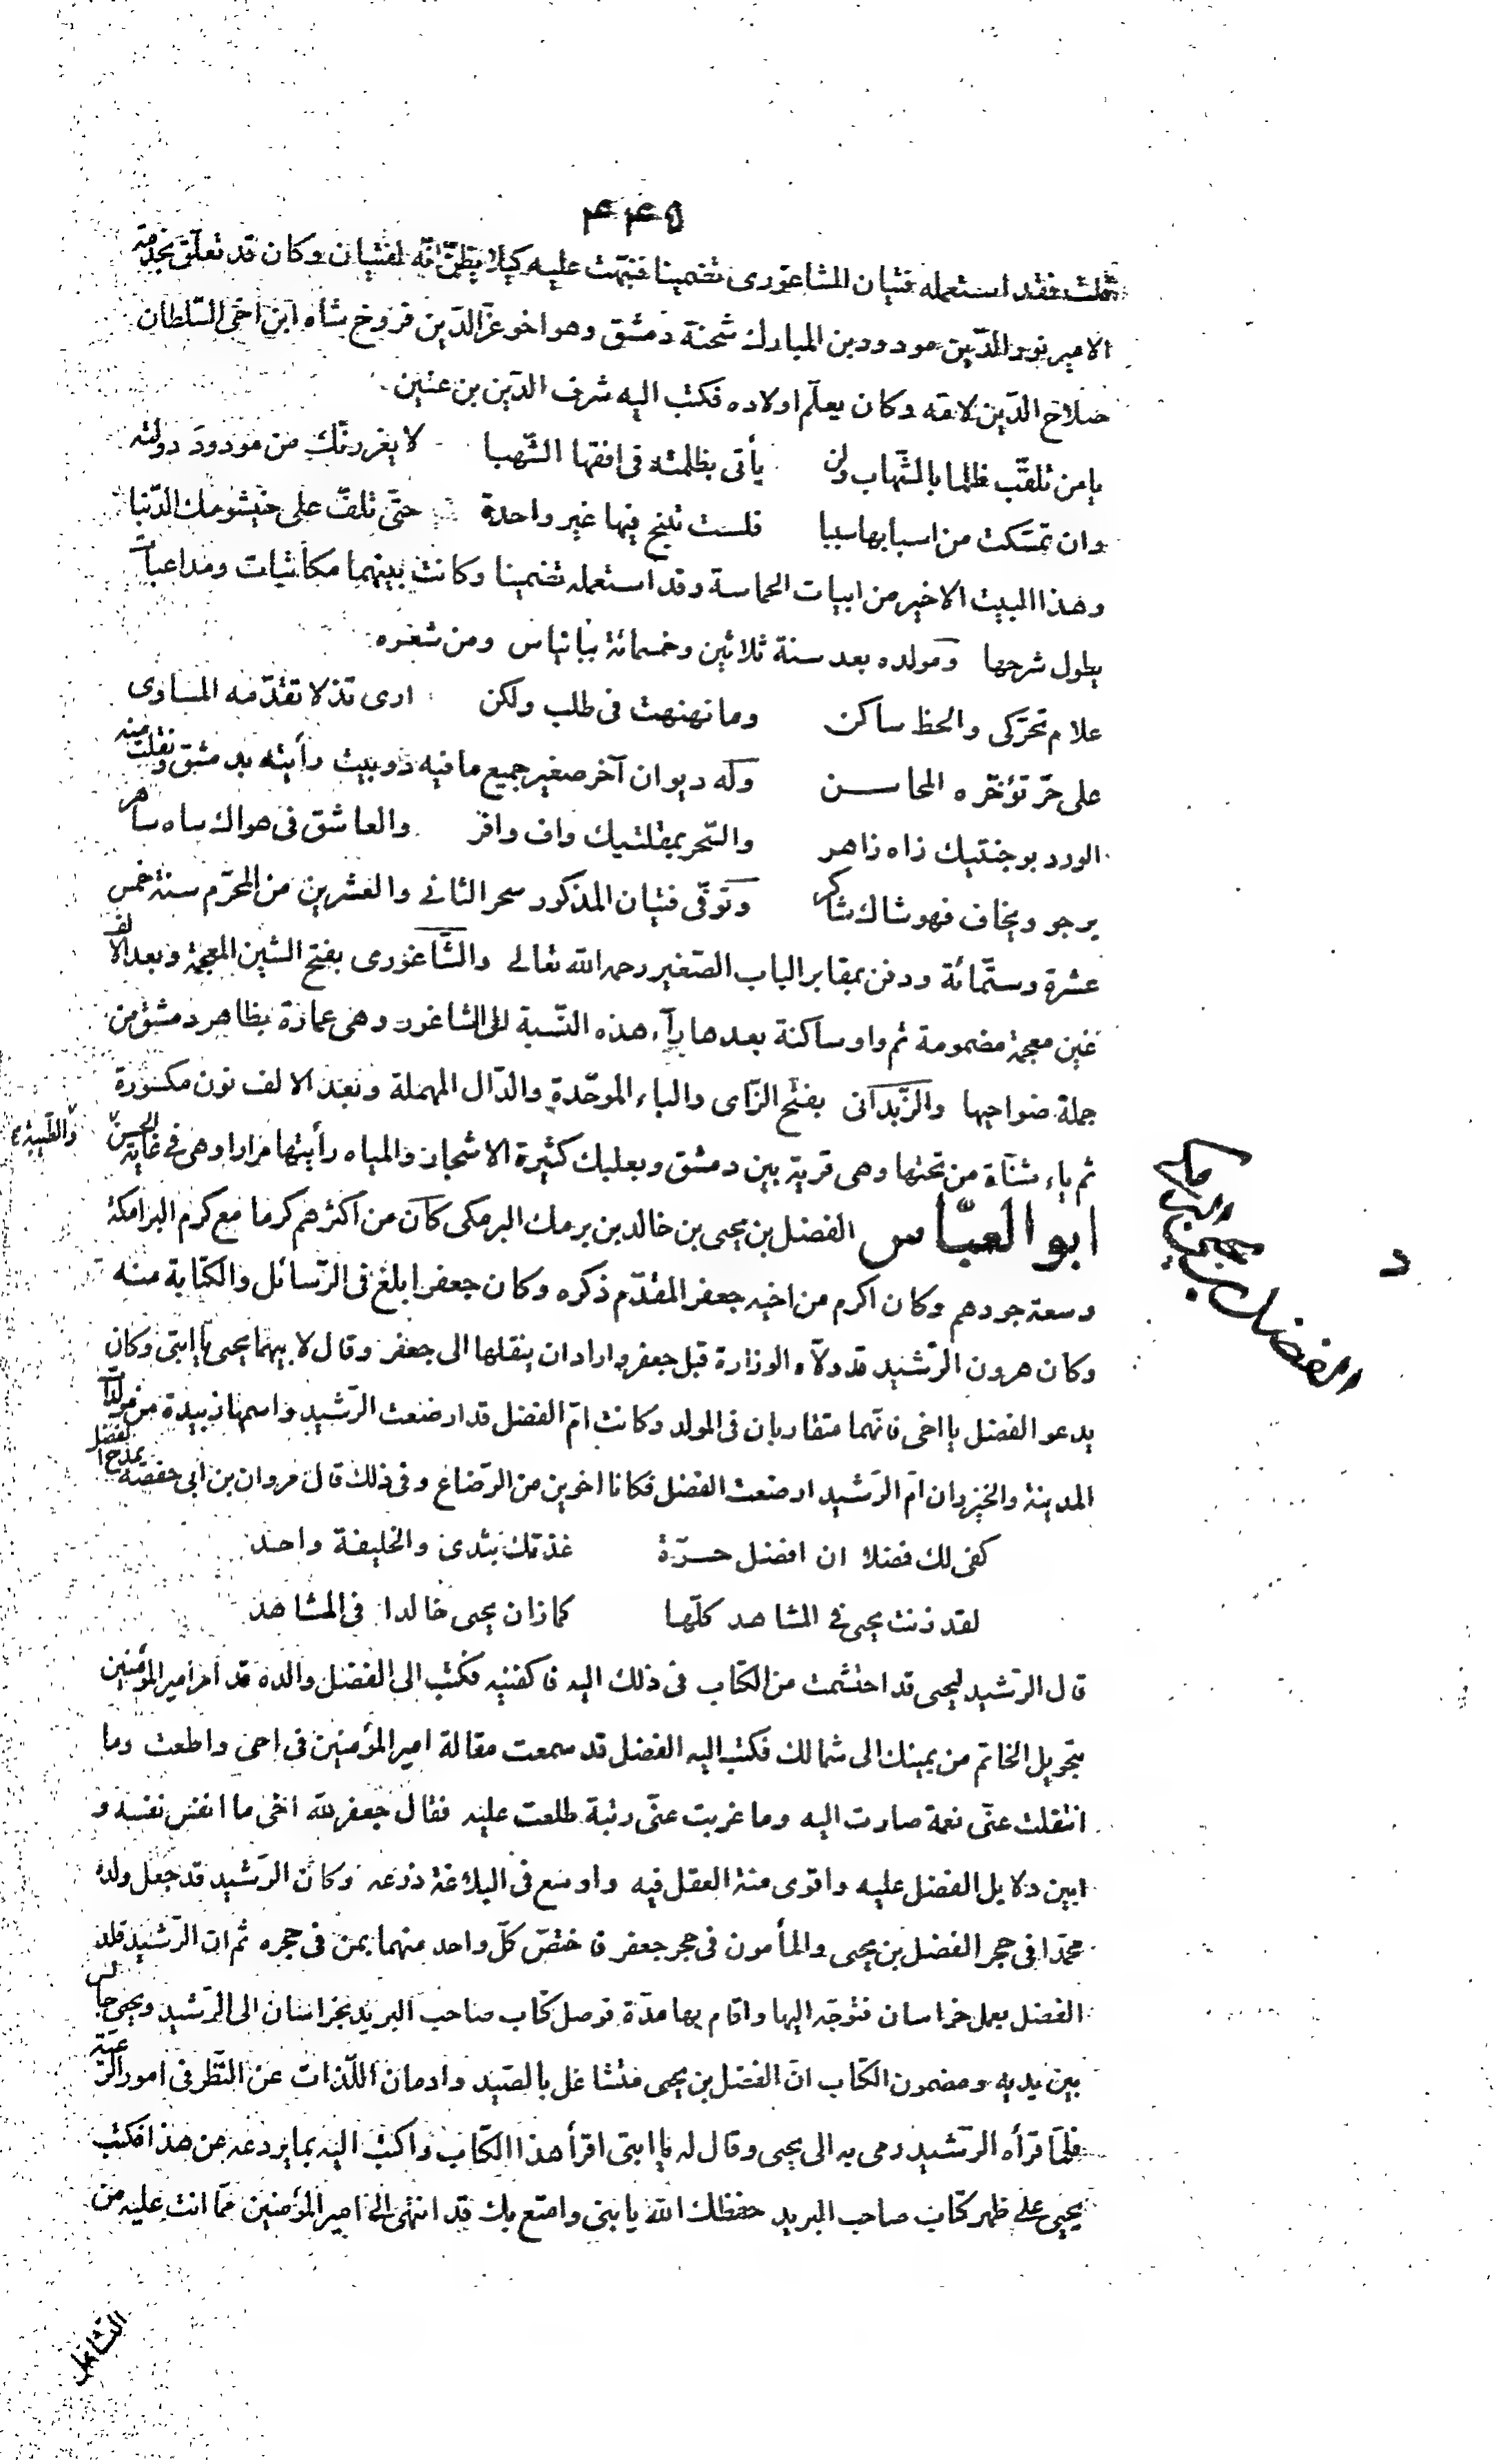 ٤٤٥
ثملت فقد استعمله فتيان الشاغوری تضمينا فنبّهت عليه كيلا يظنّ انّه لفتيان وكان قد تعلّق بخدمة
الامير نور الدّين مودود بن المبارك شحنة دمشق وهو اخو عزّ الدّين فروخ شاه ابن اخی السّلطان
صلاح الدّين لامّه وكان يعلّم اولاده فكتب اليه شرف الدّين بن عنين
يا من تلقّب ظلما بالشّهاب ولن يأتی بظلمته فی افقها الشّهبا لا يغررنّك من مودود دولته
وان تمسّكت من اسبابها سببا فلست تنبح فيها غير واحدة حتّی تلفّ علی خيشومك الذّنبا
وهذا البيت الاخير من ابيات الحماسة وقد استعمله تضمينا وكانت بينهما مكاتبات ومداعبات
يطول شرحها ومولده بعد سنة ثلاثين وخمسمائة ببانياس ومن شعره
علام تحرّكی والحظ ساكن وما نهنهت فی طلب ولكن اری نذلا تقدّمه المساوی
علی حرّ تؤخّره المحاسن وله ديوان آخر صغير جميع ما فيه دوبيت رأيته بدمشق ونقلت منه
الورد بوجنتيك زاه زاهر والسّحر بمقلتيك واف وافر والعاشق فی هواك ساه ساهر
يرجو ويخاف فهو شاك شاكر وتوفّی فتيان المذكور سحر الثانی والعشرين من المحرّم سنة خمس
عشرة وستّمائة ودفن بمقابر الباب الصّغير رحمه الله تعالی والشّاغوری بفتح الشين المعجمة وبعد الالف
غين معجمة مضمومة ثم واو ساكنة بعدها راء هذه النّسبة الی الشاغور وهی عمارة بظاهر دمشق من
جملة ضواحيها والزّبدانی بفتح الزّای والباء الموحّدة والدّال المهملة وبعد الالف نون مكسورة
ثم ياء مثنّاة من تحتها وهی قرية بين دمشق وبعلبك كثيرة الاشجار والمياه رأيتها مرارا وهی فی غاية الحسن والطيبة
ابو العبّاس الفضل بن يحيی بن خالد بن برمك البرمكی كان من اكثرهم كرما مع كرم البرامكة
وسعة جودهم وكان اكرم من اخيه جعفر المقدّم ذكره وكان جعفر ابلغ فی الرّسائل والكتابة منه
وكان هرون الرّشيد قد ولّاه الوزارة قبل جعفر واراد ان ينقلها الی جعفر وقال لابيهما يحيی يا ابتی وكان
يدعو الفضل يا اخی فانّهما متقاربان فی المولد وكانت امّ الفضل قد ارضعت الرّشيد واسمها زبيدة من مولّدات
المدينة والخيزران امّ الرّشيد ارضعت الفضل فكانا اخوين من الرّضاع وفی ذلك قال مروان بن ابی حفصة يمدح الفضل
كفی لك فضلا ان افضل حرّة غذتك بثدی والخليفة واحد
لقد زنت يحيی فی المشاهد كلّها كما زان يحيی خالدا فی المشاهد
قال الرّشيد ليحيی قد احتشمت من الكتاب فی ذلك اليه فاكفنيه فكتب الی الفضل والده قد امر امير المؤمنين
بتحويل الخاتم من يمينك الی شمالك فكتب اليه الفضل قد سمعت مقالة امير المؤمنين فی اخی واطعت وما
انتقلت عنّی نعمة صارت اليه وما غربت عنّی رتبة طلعت عليه فقال جعفر لله اخی ما انفس نفسه و
ابين دلايل الفضل عليه واقوی منة العقل فيه واوسع فی البلاغة ذرعه وكان الرّشيد قد جعل ولده
محمّدا فی حجر الفضل بن يحيی والمأمون فی حجر جعفر فاختصّ كلّ واحد منهما بمن فی حجره ثم انّ الرّشيد قلد
الفضل بعمل خراسان فتوجّه اليها واقام بها مدّة فوصل كتاب صاحب البريد بخراسان الی الرّشيد ويحيی جالس
بين يديه ومضمون الكتاب انّ الفضل بن يحيی متشاغل بالصّيد وادمان اللّذات عن النّظر فی امور الرّعيّة
فلمّا قرأه الرّشيد رمی به الی يحيی وقال له يا ابتی اقرأ هذا الكتاب واكتب اليه بما يردعه عن هذا فكتب
يحيی علی ظهر كتاب صاحب البريد حفظك الله يا بنی وامتع بك قد انتهی الی امير المؤمنين ممّا انت عليه من
التشاغل
الفضل بن يحيی البرمكی
د